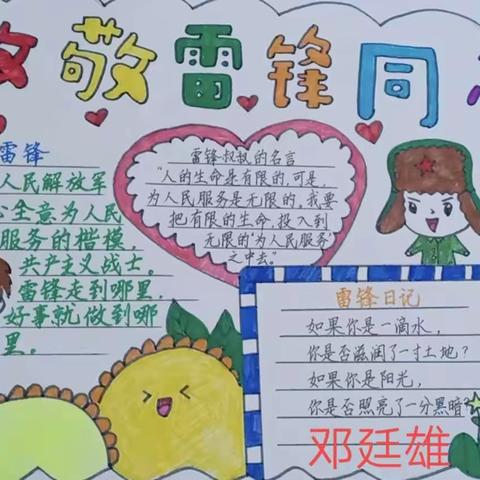 敬雷锋同
雷锋
人民解放军
心全意为人民
服务的楷模，
共产主义战士。
雷锋走到哪里，
好事就做到哪
里。
雷锋叔叔的名言
“人的生命是有限的，可是，
为人民服务是无限的，我要
把有限的生命，投入到
无限的“为人民服务”
之中去。”
雷锋日记
如果你是一滴水，
你是否滋润了一寸土地？
如果你是阳光，
你是否照亮了一分黑暗？
邓廷雄